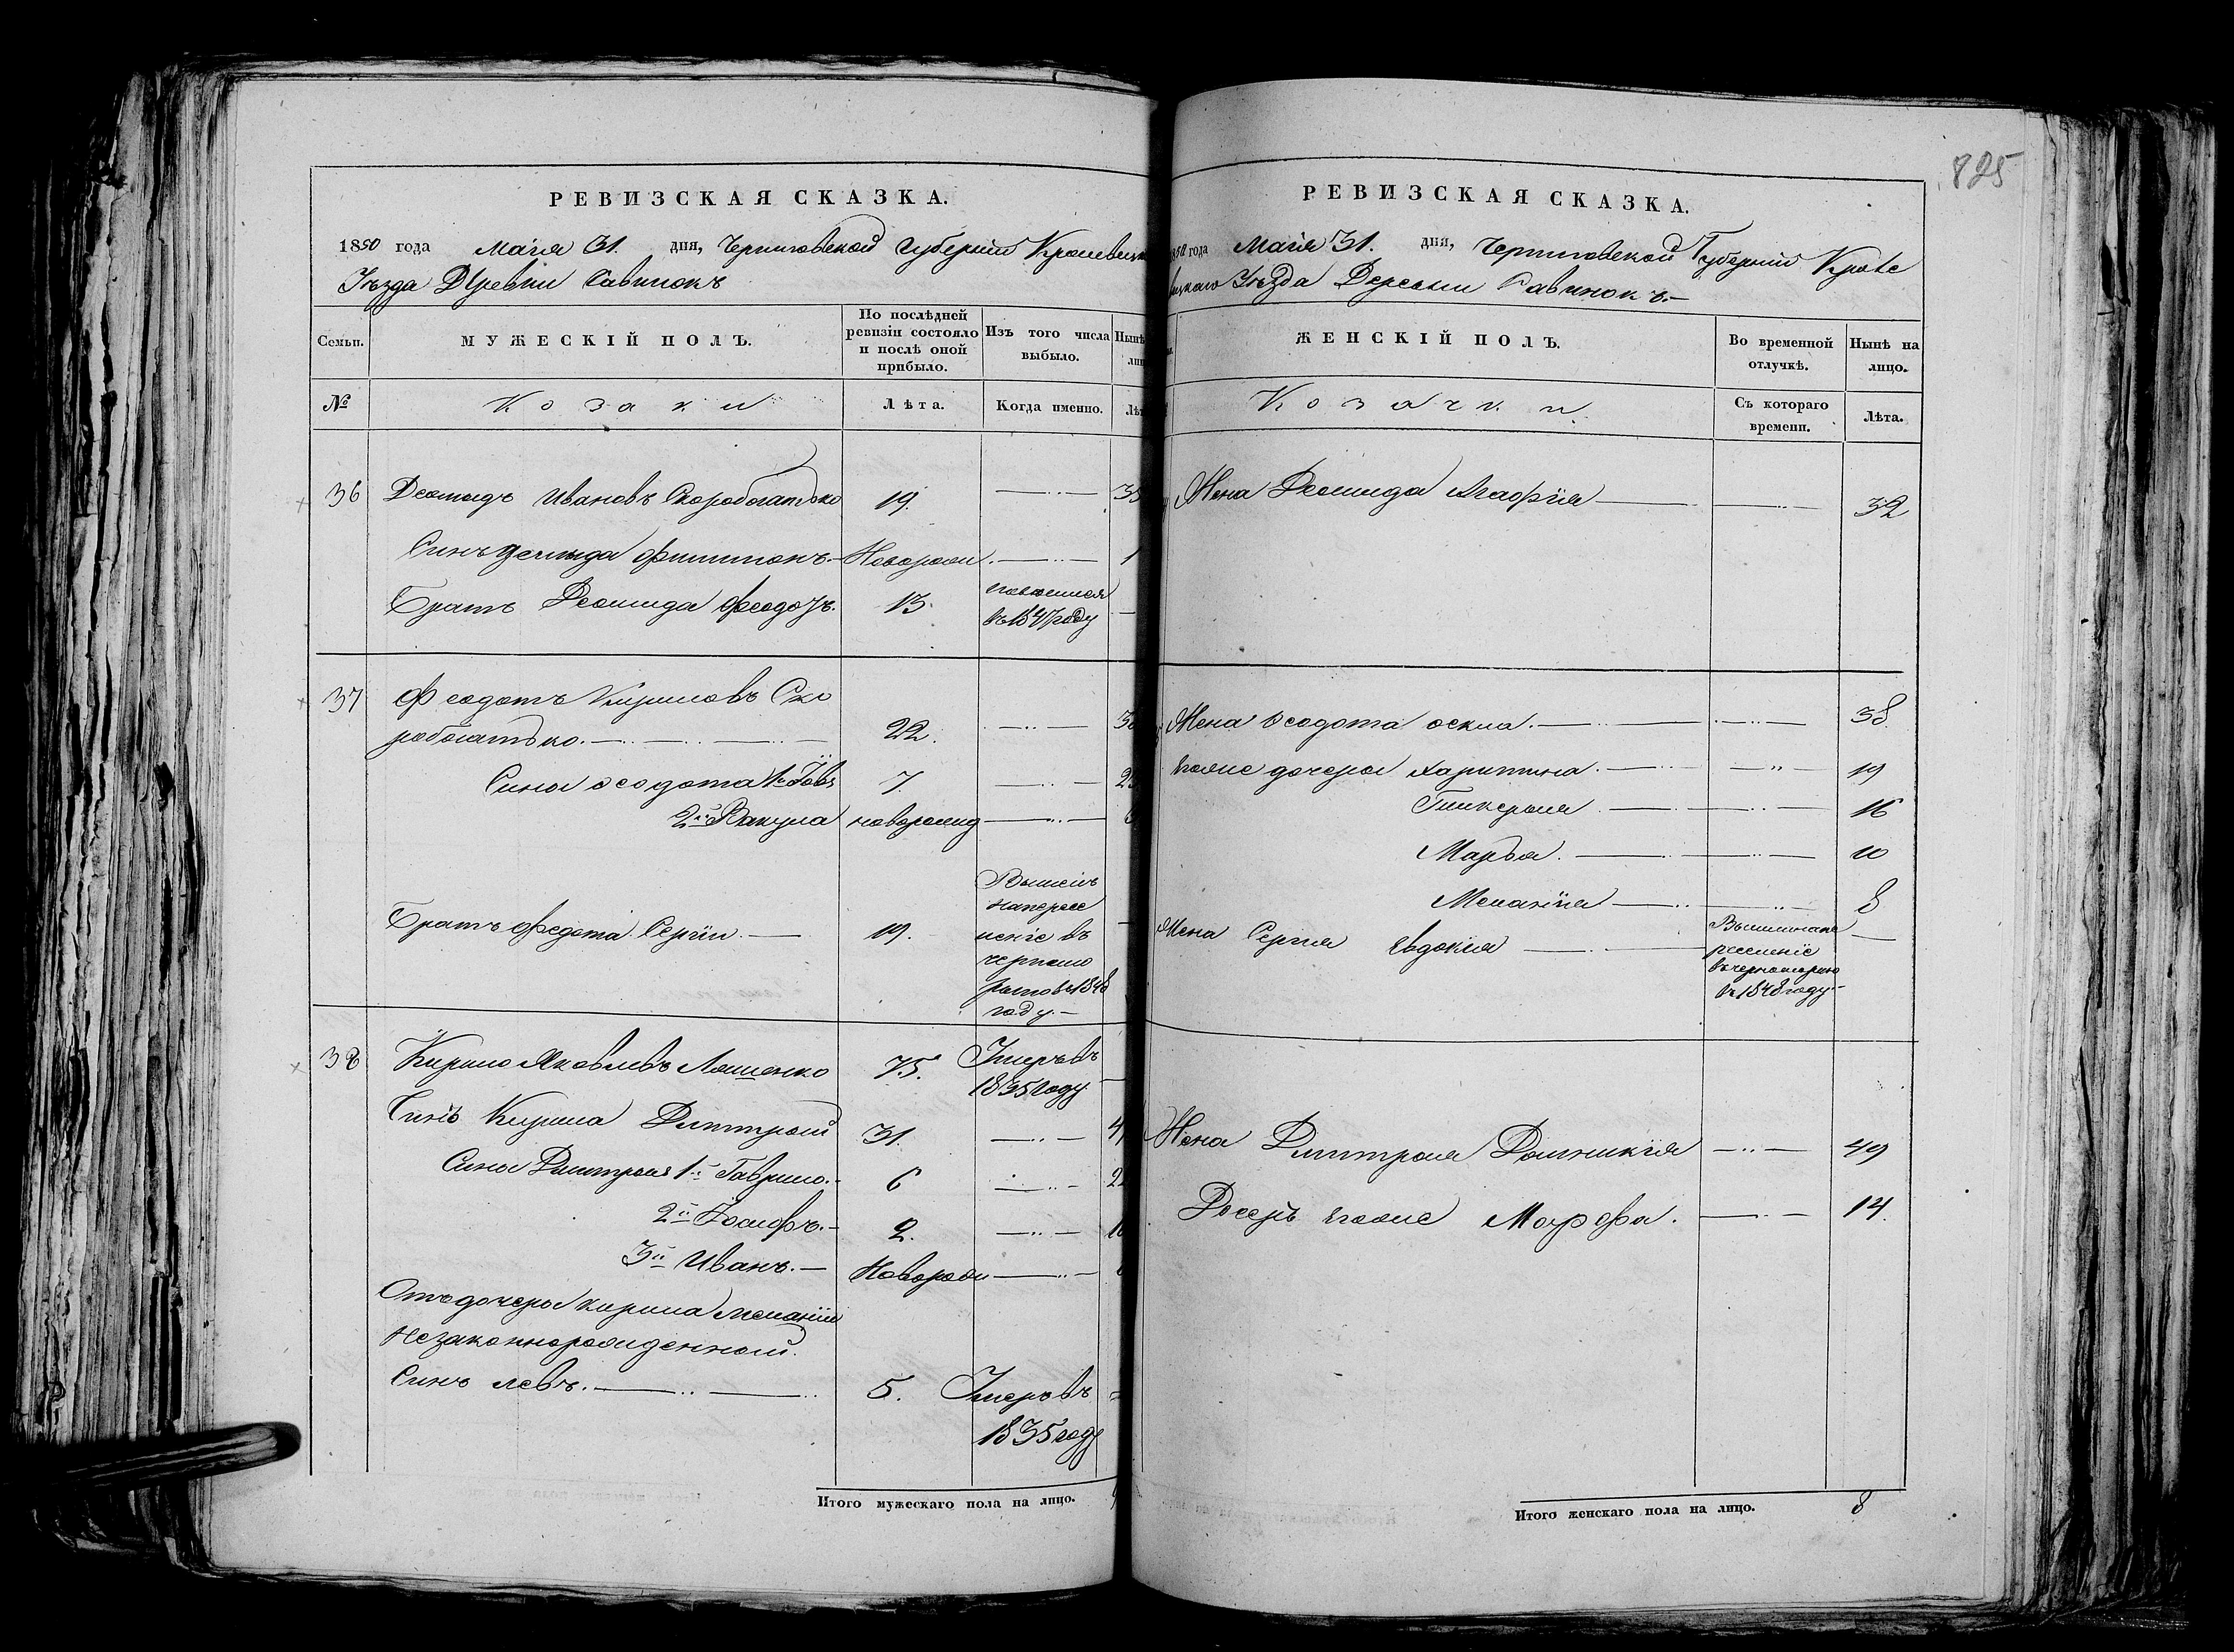 825
РЕВИЗСКАЯ СКАЗКА.
1850 года Маія 31. дня, Черниговской Губерніи Кролевецк
Уѣзда Дъревни Савинокъ
Семьи. МУЖЕСКІЙ ПОЛЪ. По послѣдней ревизіи состояло и послѣ оной прибыло. Изъ того числа выбыло. Нынѣ
№ Козаки Лѣта. Когда именно.
36 Деомидъ Ивановъ Скоробогатько 19.
Синъ Деомида Филимонъ. Новорожд. 1
Братъ Деомида Феодоръ. 13. въ 1847 году
37 Феодотъ Кириловъ Ско
робогатько. 22.
Сины Феодота 1й Іовъ 7.
2й Вакула новорожд
Братъ Федота Сергіи 19. Вышелъ
на пересе
леніе въ
Черномо
рію въ 1848
году.
38 Кирило Яковлевъ Лошенко 75. Умеръ въ
1835 году
Синъ Кирила Дмитрой 31.
Сины Дмитроя 1й Гаврило. 6
2й Іосифъ. 2.
3й Иванъ. Новорож
Отъ дочеры Кирила Меланіи
Незаконнорожденной.
Синъ Левъ. 5. Умеръ въ
1835 году
Итого мужескаго пола на лицо.
РЕВИЗСКАЯ СКАЗКА.
1850 года Маія 31. дня, Черниговской Губерніи Кроле
вецкаго Уѣзда Деревни Савинокъ
ЖЕНСКІЙ ПОЛЪ. Во временной отлучкѣ. Нынѣ на лицо.
Козачки Съ котораго времени. Лѣта.
Жена Деомида Агафія 32
Жена Феодота 38
Егоже дочеры Харитина. 19
Гликерыя 16
Марья. 10
Меланія 8
Жена Сергія Евдокія Вышла на пе
реселеніе
въ Черноморію
въ 1848 году
Жена Дмитроя Домникія 49
Дочерь Егоже Марфа. 14.
Итого женскаго пола на лицо. 8